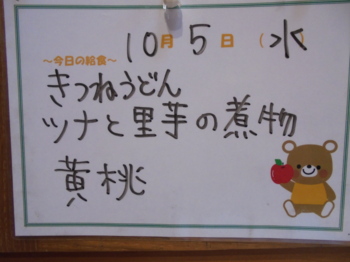 10月5日(水)
～今日の給食～
きつねうどん
ツナと里芋の煮物
黄桃